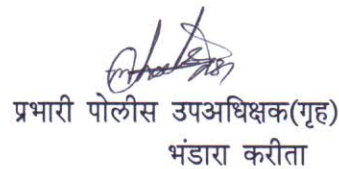 प्रभारी पोलीस उपअधिक्षक(गृह)
भंडारा करीता